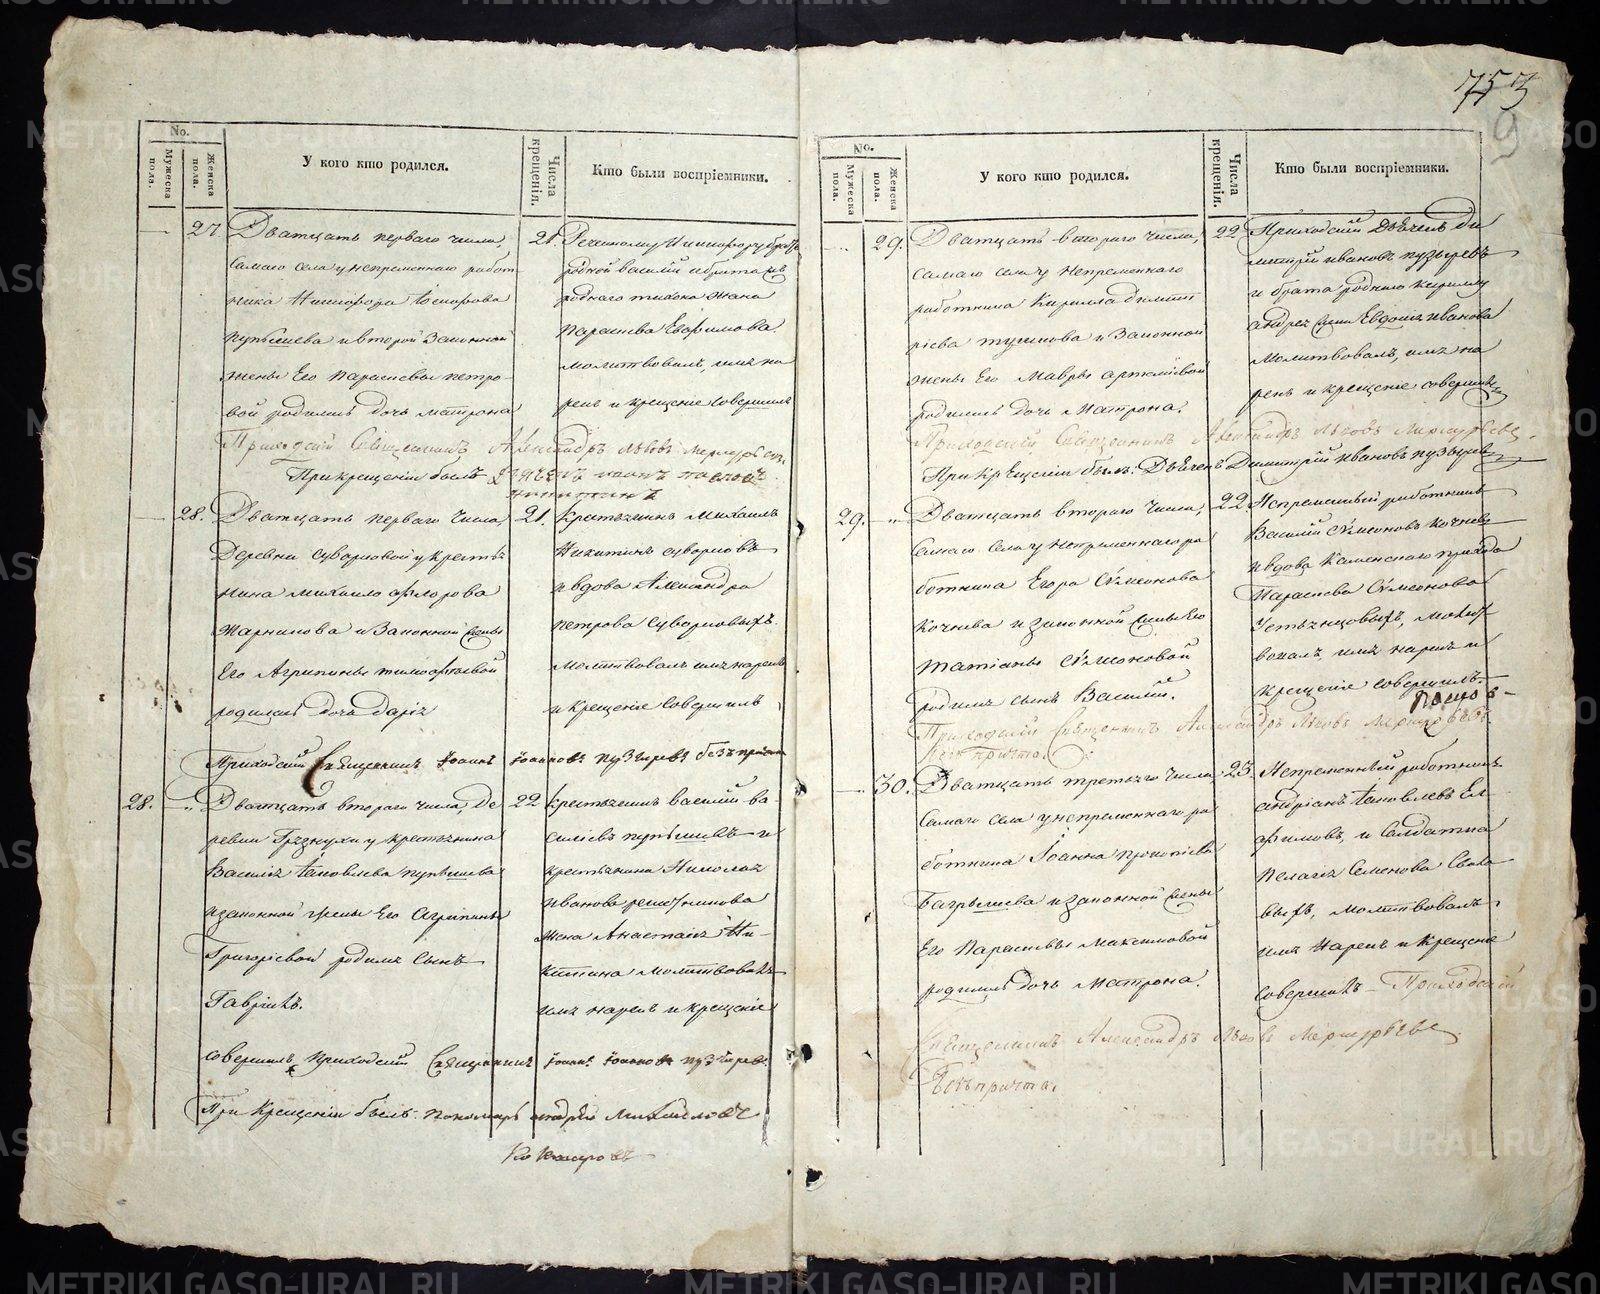 753
9
No.
Мужеска пола.
Женска пола.
У кого кто родился.
Числа крещенія.
Кто были воспріемники.
27
Дватцать перваго числа,
самаго села у непременнаго работ
ника Никифора
и второй законной
жены Его Параскевы петро-
вой родилась дочь матрона
Приходскій Священникъ Александръ Львовъ
При крещеніи былъ дьячекъ иоанъ павловъ
никитинъ
21.
Никифору братъ
родной василій и брата
роднаго тихона жена
Параскева Евфимова.
молитвовалъ, имя на
рекъ и крещеніе совершилъ
28.
Дватцать перваго числа,
Деревни суворковой у кресть
нина михаило флорова
и законной жены
Его Агрипины тимофѣевой
родилась дочь дарія
21.
крестьянинъ михаилъ
Никитинъ суворковъ
и вдова Александра
петрова суворковыхъ
молитвовалъ имя нарекъ
и крещеніе совершилъ
Приходскій Священникъ Іоаннъ Іоанновъ пузыревъ безъ причта
28.
Дватцать втораго числа, де
ревни Грязнухи у крестьянина
Василія Іаковлева
и законной жены Его Агрипины
Григоріевой родился сынъ
Гавріилъ.
22
крестьянинъ василій ва
силіевъ и
крестьянина Николая
иванова решетникова
жена Анастасія Ни-
китина молитвовалъ
имя нарекъ и крещеніе
совершилъ приходскій Священникъ Іоаннъ Іоанновъ пузыревъ.
При крещеніи былъ: пономарь андрей михайловъ
No.
Мужеска пола.
Женска пола.
У кого кто родился.
Числа крещенія.
Кто были воспріемники.
29.
Дватцать втораго числа,
самаго села у непременнаго
работника Кирилла димит
ріева и законной
жены Его Мавры артемьевой
родилась дочь Матрона.
22
Приходскій дьячекъ ди
митрій ивановъ пузыревъ
и брата роднаго кириллу
андрея жена Евдокія иванова
молитвовалъ, имя на
рекъ и крещеніе совершилъ
Приходскій Священникъ Александръ Львовъ
При крещеніи былъ: Дьячекъ Димитрій ивановъ пузыревъ
29.
Дватцать втораго числа,
самаго села у непременнаго ра
ботника Егора Сѵмеонова
кочнева и законной жены Его
татіаны сѵмеоновой
родился сынъ Василій.
22
Непременный работникъ
Василій сѵмеоновъ кочневъ
и вдова Каменскаго прихода
Параскева сѵмеонова
молит
вовалъ, имя нарекъ и
крещеніе совершилъ
Приходскій Священникъ Александръ Львовъ
безъ причта.
30.
Дватцать третьяго числа
самаго села у непременнаго ра
ботника Іоанна прокопіева
и законной жены
Его Параскевы максимовой
родилась дочь матрона.
23
Непременный работникъ
андріанъ Іаковлевъ Ел
фимовъ, и солдатка
пелагія семенова
молитвовалъ,
имя нарекъ и крещеніе
совершилъ Приходскій
Священникъ Александръ Львовъ
Безъ причта.
METRIKI.GASO-URAL.RU